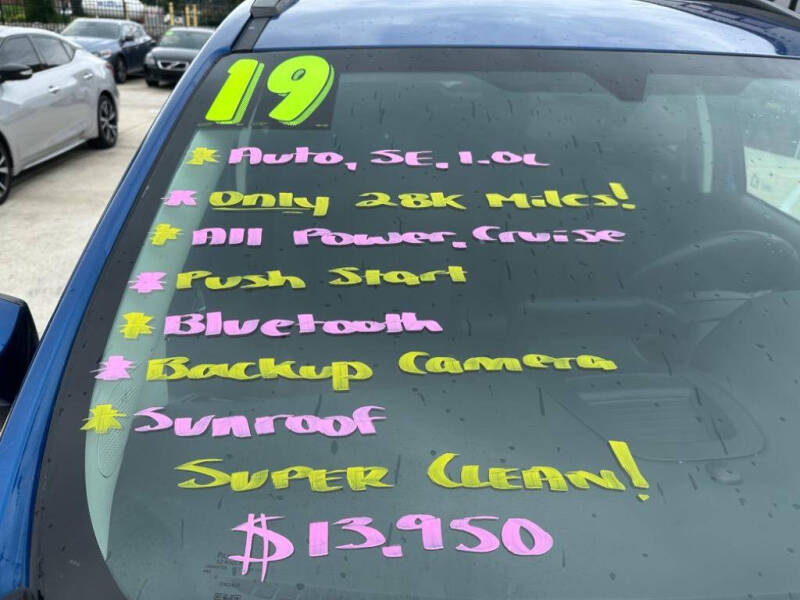 19
* Auto, SE, 1.0L
* Only 28K Miles!
* All Power, Cruise
* Push Start
* Bluetooth
* Backup Camera
* Sunroof
Super Clean!
$13,950